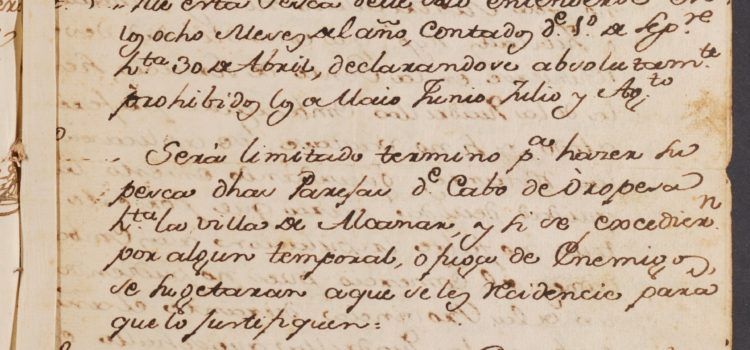 Que esta Pesca debe solo entenderse en
los ocho Meses del año, contados de 1º de Sepre
hta 30 de Abril, declarandose absolutamte
prohibidos los de Maio Junio Julio y Agto
Será limitado termino pa hazer su
pesca dhas Parejas de Cabo de Oropesa
hta la villa de Alcanar, y si se excediern
por algun temporal, ó fuga de Enemigos
se sugetaran a que se les recidencie para
que lo justifiquen: